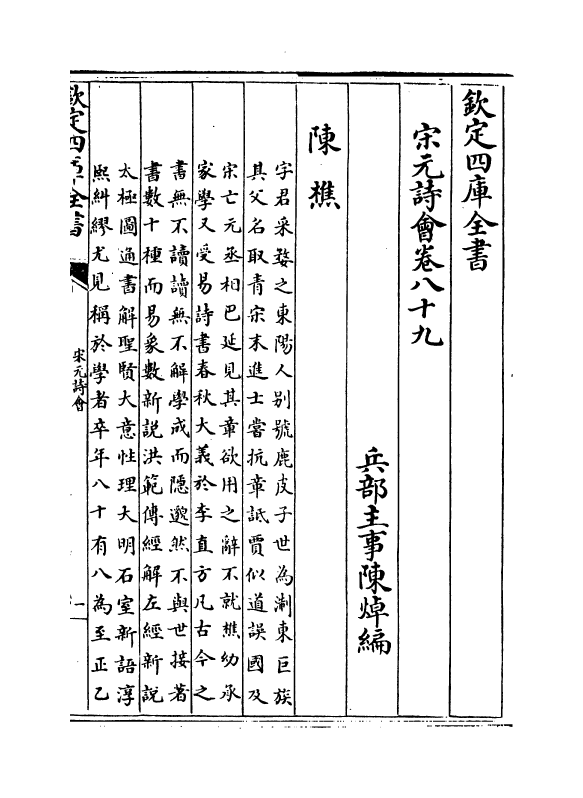 欽定四庫全書
宋元詩會卷八十九
兵部主事陳焯編
陳樵
字君采婺之東陽人别號鹿皮子世為淛東巨族
其父名取青宋末進士嘗抗章詆賈似道誤國及
宋亡元丞相巴延見其章欲用之辭不就樵幼承
家學又受易詩書春秋大義於李直方凡古今之
書無不讀讀無不解學成而隱邈然不與世接著
書數十種而易象數新説洪範傳經解左經新説
太極圖通書解聖賢大意性理大明石室新語淳
熙糾繆尤見稱於學者卒年八十有八為至正乙
欽定四庫全書
宋元詩會
一